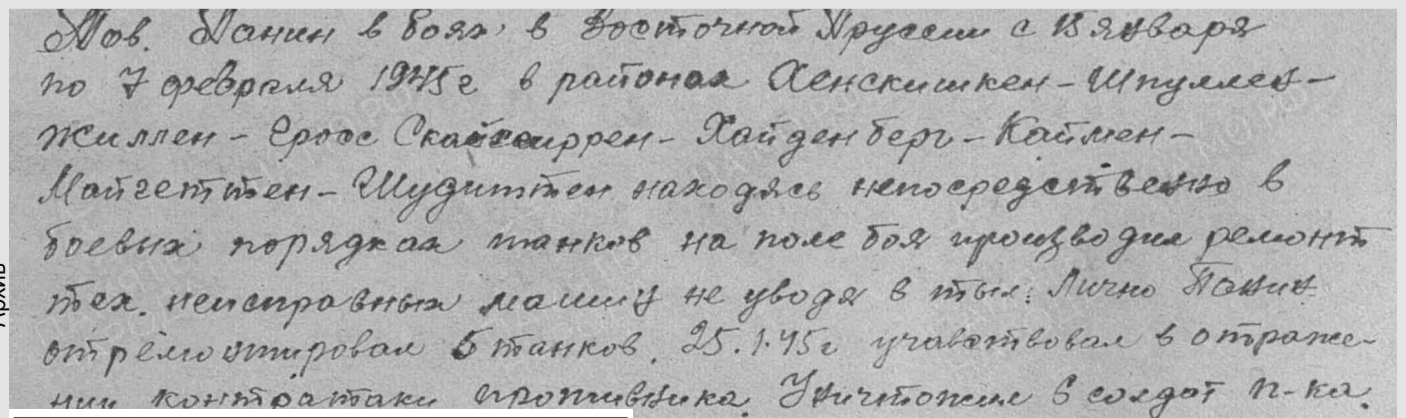 Тов. Панин в боях в Восточной Пруссии с 15 января
по 7 февраля 1945г в районах Хенскишкен - Шпуллен -
Жиллен - Гросс Скайсгиррен - Хайденберг - Каймен -
Майгеттен - Шудиттен находясь непосредственно в
боевых порядках танков на поле боя производил ремонт
тех. неисправных машин не уводя в тыл. Лично Панин
отремонтировал 5 танков. 25.1.45г учавствовал в отраже-
нии контратаки противника. Уничтожил 6 солдат п-ка.